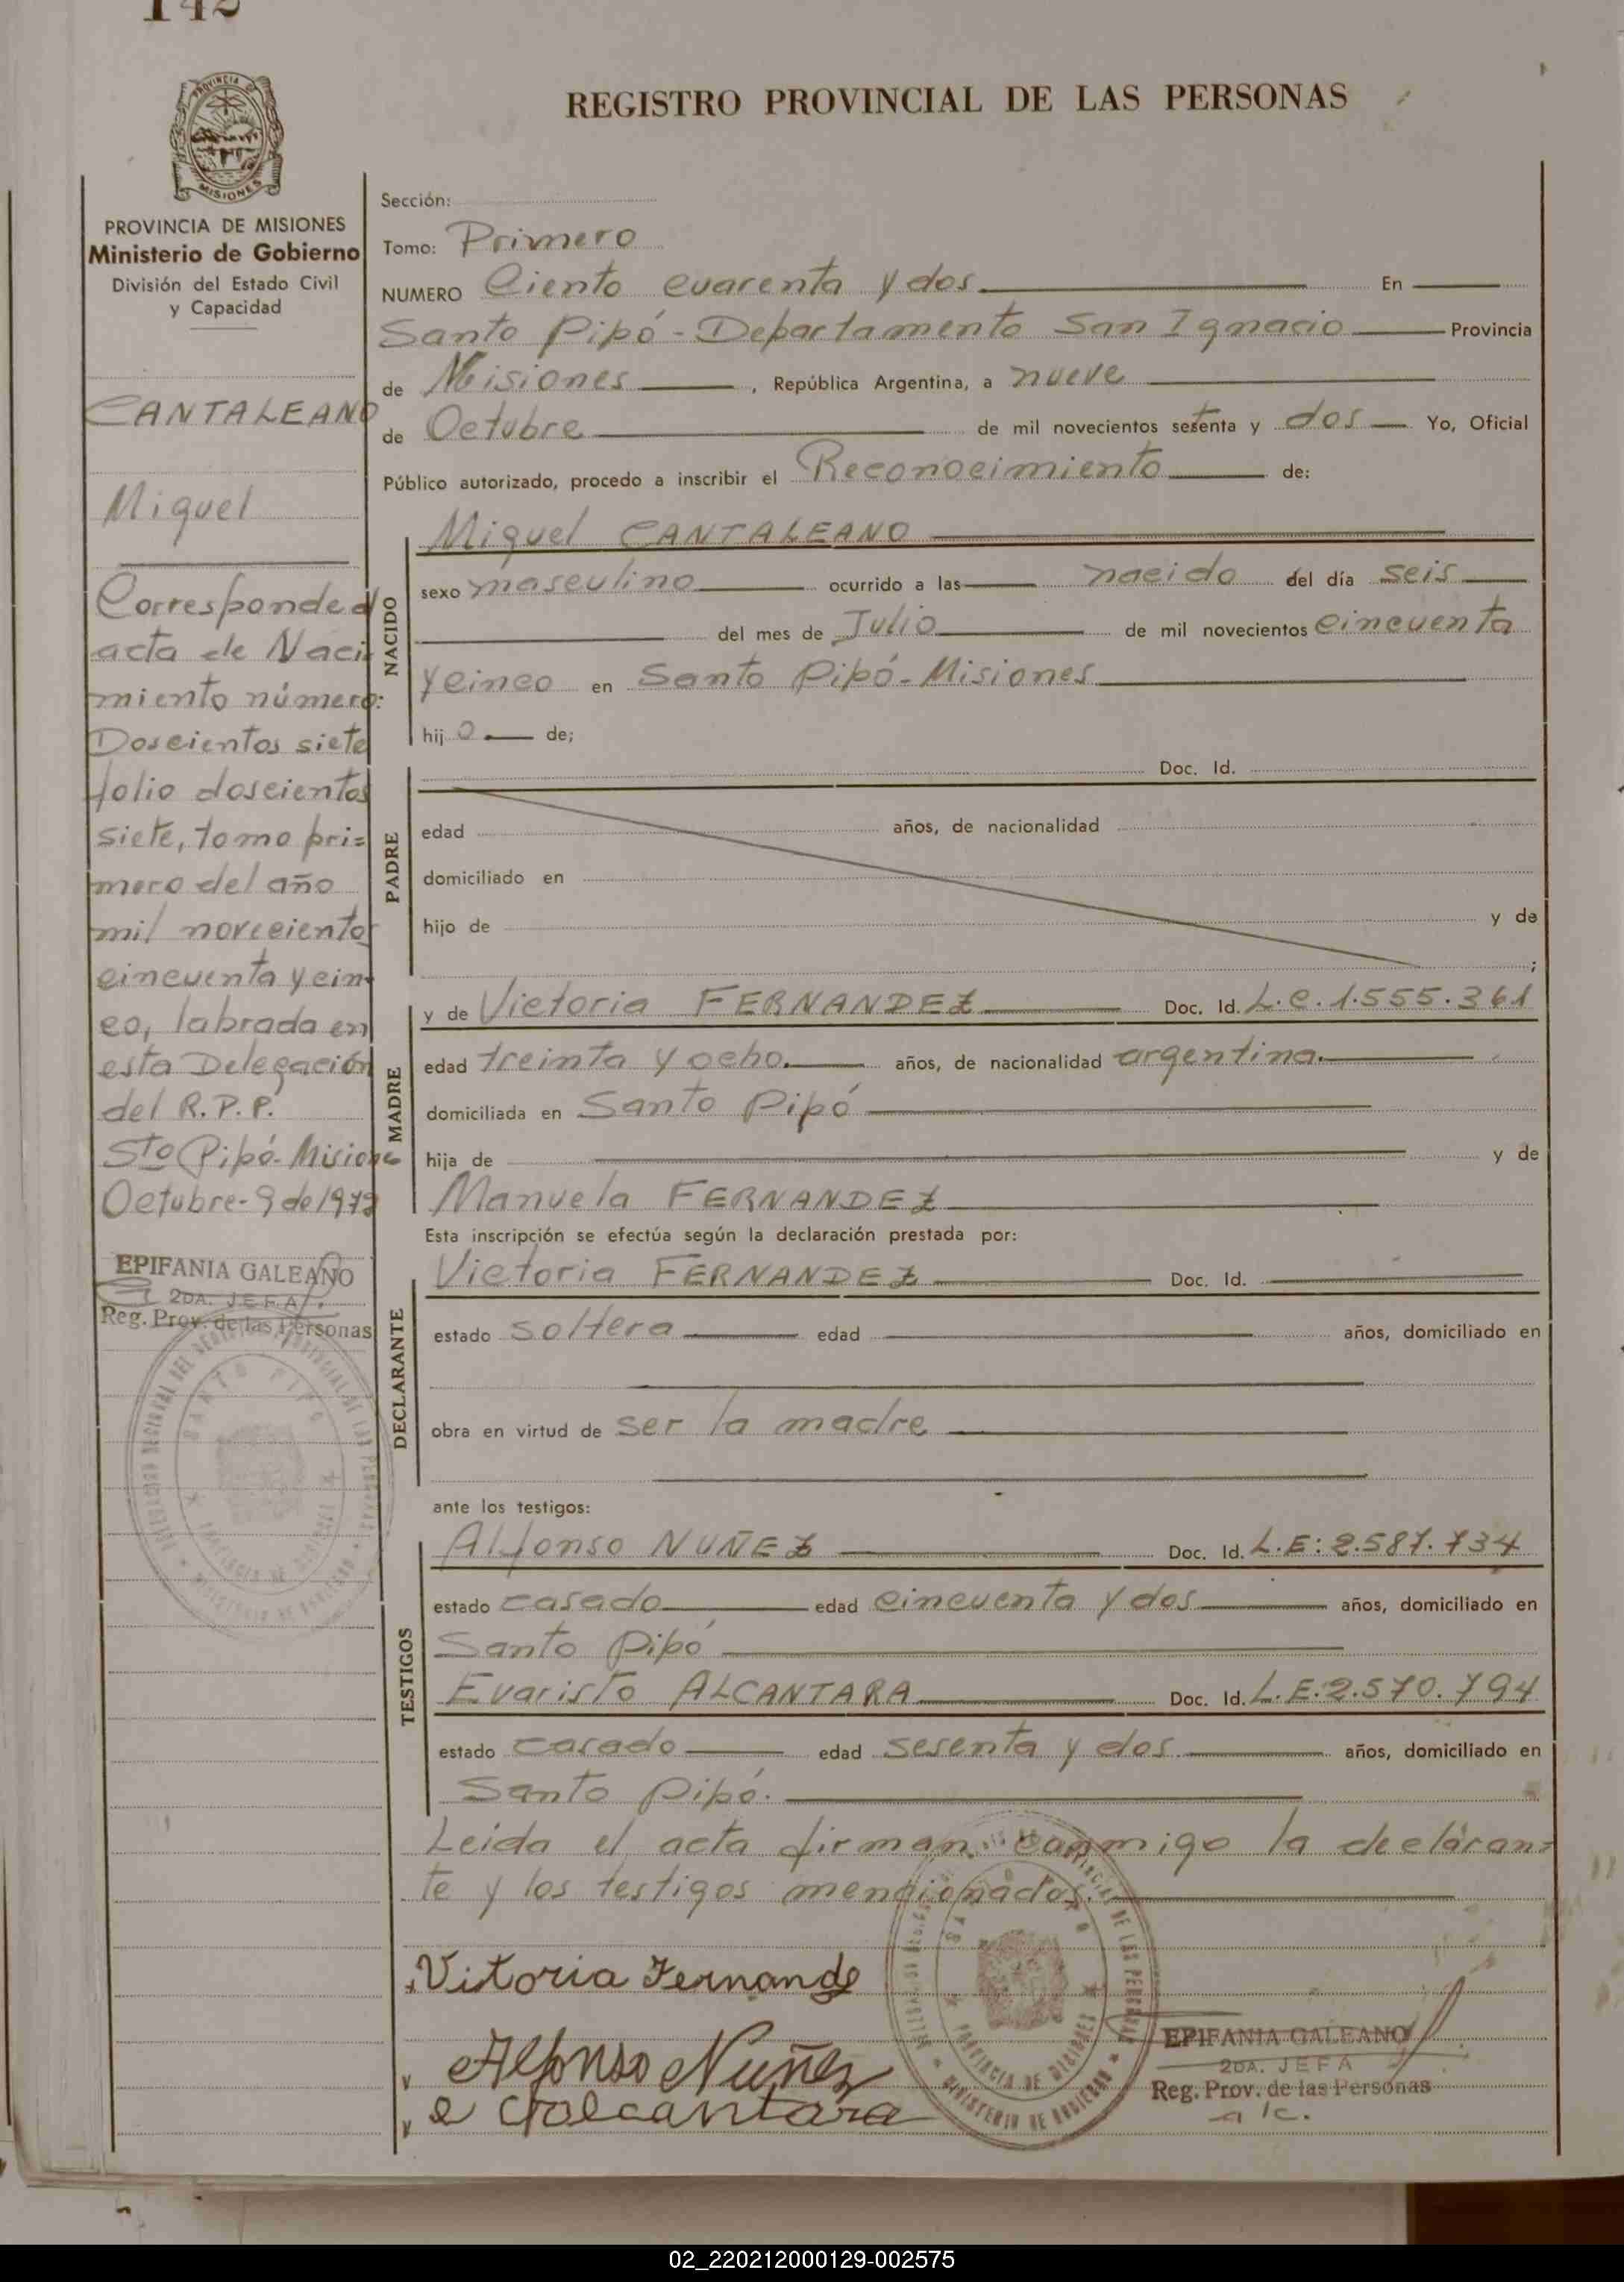 142
REGISTRO PROVINCIAL DE LAS PERSONAS
PROVINCIA
MISIONES
PROVINCIA DE MISIONES
Ministerio de Gobierno
División del Estado Civil
y Capacidad
CANTALEANO
Miguel
Corresponde al
acta de Naci
miento número:
Doscientos siete
folio doscientos
siete, tomo pri=
mero del año
mil novecientos
cincuenta y cin-
co, labrada en
esta Delegación
del R.P.P.
Sto Pipó-Misiones
Octubre-9 de 1972
EPIFANIA GALEANO
2DA. JEFA
Reg. Prov. de las Personas
SANTO PIPO
Sección:
Tomo: Primero
NUMERO Ciento cuarenta y dos. En
Santo Pipó-Departamento San Ignacio Provincia
de Misiones, República Argentina, a nueve
de Octubre de mil novecientos setenta y dos Yo, Oficial
Público autorizado, procedo a inscribir el Reconocimiento de:
NACIDO
Miguel CANTALEANO
sexo masculino ocurrido a las nacido del día seis
del mes de Julio de mil novecientos cincuenta
y cinco en Santo Pipó-Misiones
hij o de;
PADRE
Doc. Id.
edad años, de nacionalidad
domiciliado en
hijo de y de
;
MADRE
y de Victoria FERNANDEZ Doc. Id. L.C.1.555.361
edad treinta y ocho. años, de nacionalidad argentina.
domiciliada en Santo Pipó
hija de y de
Manuela FERNANDEZ
Esta inscripción se efectúa según la declaración prestada por:
DECLARANTE
Victoria FERNANDEZ Doc. Id.
estado soltera edad años, domiciliado en
obra en virtud de ser la madre
ante los testigos:
TESTIGOS
Alfonso NUÑEZ Doc. Id. L.E:2.587.734
estado casado edad cincuenta y dos años, domiciliado en
Santo Pipó
Evaristo ALCANTARA Doc. Id. L.E.2.570.794
estado casado edad sesenta y dos. años, domiciliado en
Santo Pipó.
Leida el acta firman conmigo la declaran=
te y los testigos mencionados.
Vitoria Fernande
Alfonso Nuñez
PROVINCIA DE MISIONES
MINISTERIO DE GOBIERNO
EPIFANIA GALEANO
2DA. JEFA
Reg. Prov. de las Personas
a/c.
02_220212000129-002575